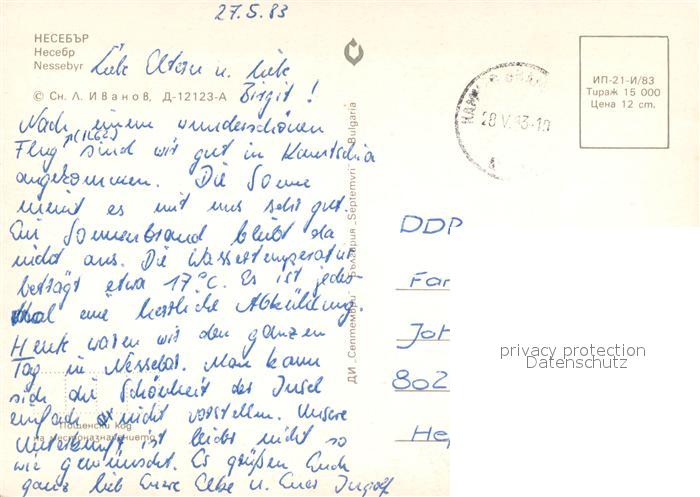 27.5.83
НЕСЕБЪР
Несебр
Nessebyr
© Сн. Л. Иванов, Д-12123-А
Liebe Eltern u. liebe
Birgit!
Nach einem wunderschönen
Flug (IL62) sind wir gut in Kamtschia
angekommen. Die Sonne
meint es mit uns sehr gut.
Ein Sonnenbrand bleibt da
nicht aus. Die Wassertemperatur
beträgt etwa 17°C. Es ist jedes-
mal eine herrliche Abkühlung.
Heute waren wir den ganzen
Tag in Nessebar. Man kann
sich die Schönheit der Insel
einfach nicht vorstellen. Unsere
Unterkunft ist leider nicht so
wie gewünscht. Es grüßen Euch
ganz lieb Eure Elke u. Euer Ingolf
Пощенски код
на местоназначението
ДИ „Септември“ България „Septemvri“ Bulgaria
28.V.83-10
ИП-21-И/83
Тираж 15 000
Цена 12 ст.
DDR
Fam
Joh
802
He
privacy protection
Datenschutz